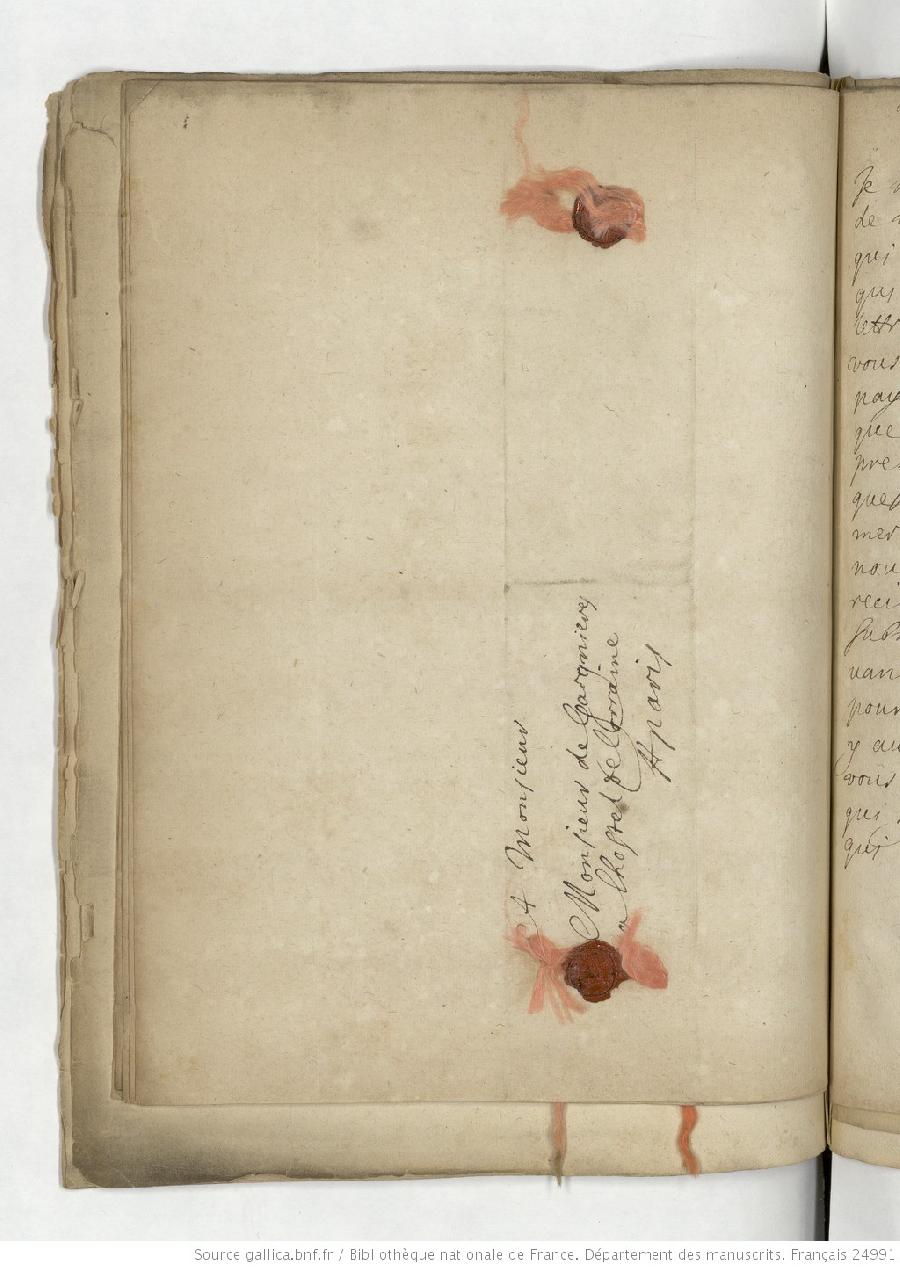 A Monsieur
Monsieur de Gaignieres
a lhostel de Lorraine
A paris
Je
de
qui
que
lettr
vous
pay
que
pre
ques
mer
nou
reci
van
pour
y au
vous
qui
qui
Source gallica.bnf.fr / Bibliothèque nationale de France. Département des manuscrits. Français 24991